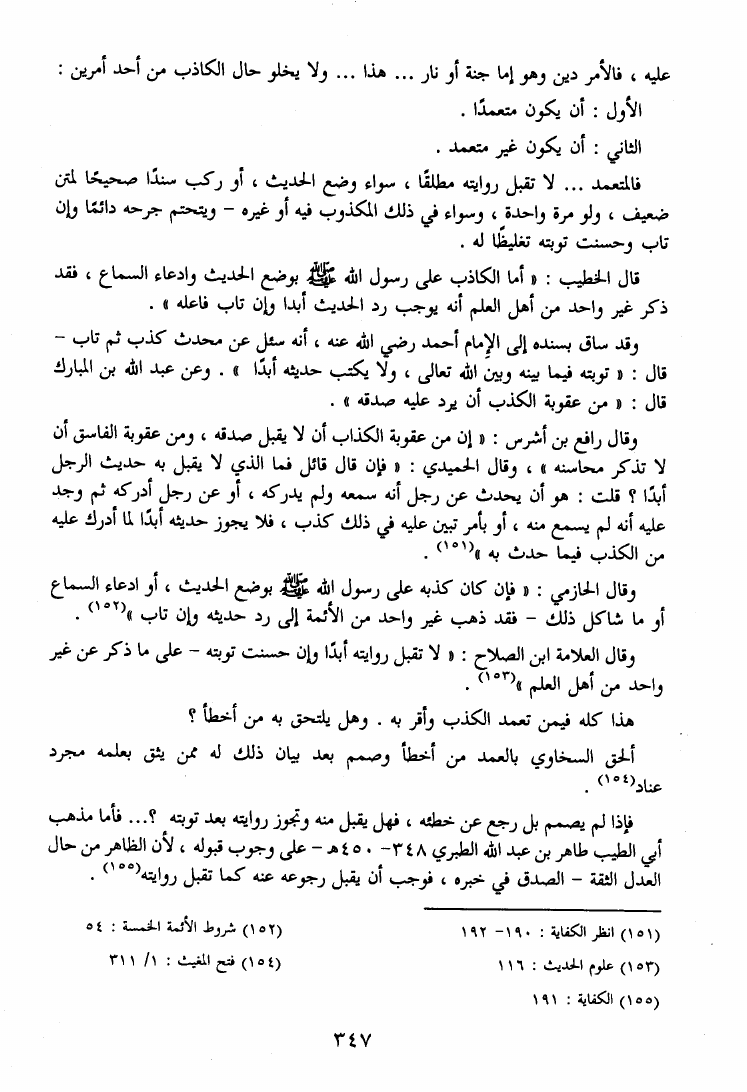 عليه ، فالأمر دين وهو إما جنة أو نار ... هذا ... ولا يخلو حال الكاذب من أحد أمرين :
الأول : أن يكون متعمدًا .
الثاني : أن يكون غير متعمد .
فالمتعمد ... لا تقبل روايته مطلقًا ، سواء وضع الحديث ، أو ركب سندًا صحيحًا لمتن
ضعيف ، ولو مرة واحدة ، وسواء في ذلك المكذوب فيه أو غيره – ويتحتم جرحه دائمًا وإن
تاب وحسنت توبته تغليظًا له .
قال الخطيب : « أما الكاذب على رسول الله ﷺ بوضع الحديث وادعاء السماع ، فقد
ذكر غير واحد من أهل العلم أنه يوجب رد الحديث أبدا وإن تاب فاعله » .
وقد ساق بسنده إلى الإمام أحمد رضي الله عنه ، أنه سئل عن محدث كذب ثم تاب –
قال : « توبته فيما بينه وبين الله تعالى ، ولا يكتب حديثه أبدًا » . وعن عبد الله بن المبارك
قال : « من عقوبة الكذب أن يرد عليه صدقه » .
وقال رافع بن أشرس : « إن من عقوبة الكذاب أن لا يقبل صدقه ، ومن عقوبة الفاسق أن
لا تذكر محاسنه » ، وقال الحميدي : « فإن قال قائل فما الذي لا يقبل به حديث الرجل
أبدًا ؟ قلت : هو أن يحدث عن رجل أنه سمعه ولم يدركه ، أو عن رجل أدركه ثم وجد
عليه أنه لم يسمع منه ، أو بأمر تبين عليه في ذلك كذب ، فلا يجوز حديثه أبدًا لما أدرك عليه
من الكذب فيما حدث به »(١٥١) .
وقال الحازمي : « فإن كان كذبه على رسول الله ﷺ بوضع الحديث ، أو ادعاء السماع
أو ما شاكل ذلك – فقد ذهب غير واحد من الأئمة إلى رد حديثه وإن تاب »(١٥٢) .
وقال العلامة ابن الصلاح : « لا تقبل روايته أبدًا وإن حسنت توبته – على ما ذكر عن غير
واحد من أهل العلم »(١٥٣) .
هذا كله فيمن تعمد الكذب وأقر به . وهل يلتحق به من أخطأ ؟
ألحق السخاوي بالعمد من أخطأ وصمم بعد بيان ذلك له ممن يثق بعلمه مجرد
عناد(١٥٤) .
فإذا لم يصمم بل رجع عن خطئه ، فهل يقبل منه وتجوز روايته بعد توبته ؟... فأما مذهب
أبي الطيب طاهر بن عبد الله الطبري ٣٤٨– ٤٥٠هـ – على وجوب قبوله ، لأن الظاهر من حال
العدل الثقة – الصدق في خبره ، فوجب أن يقبل رجوعه عنه كما تقبل روايته(١٥٥) .
(١٥١) انظر الكفاية : ١٩٠– ١٩٢
(١٥٢) شروط الأئمة الخمسة : ٥٤
(١٥٣) علوم الحديث : ١١٦
(١٥٤) فتح المغيث : ١/ ٣١١
(١٥٥) الكفاية : ١٩١
٣٤٧